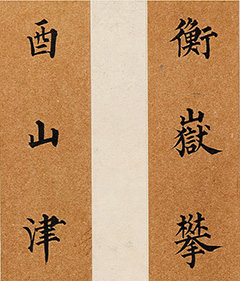 衡嶽攀
酉山津